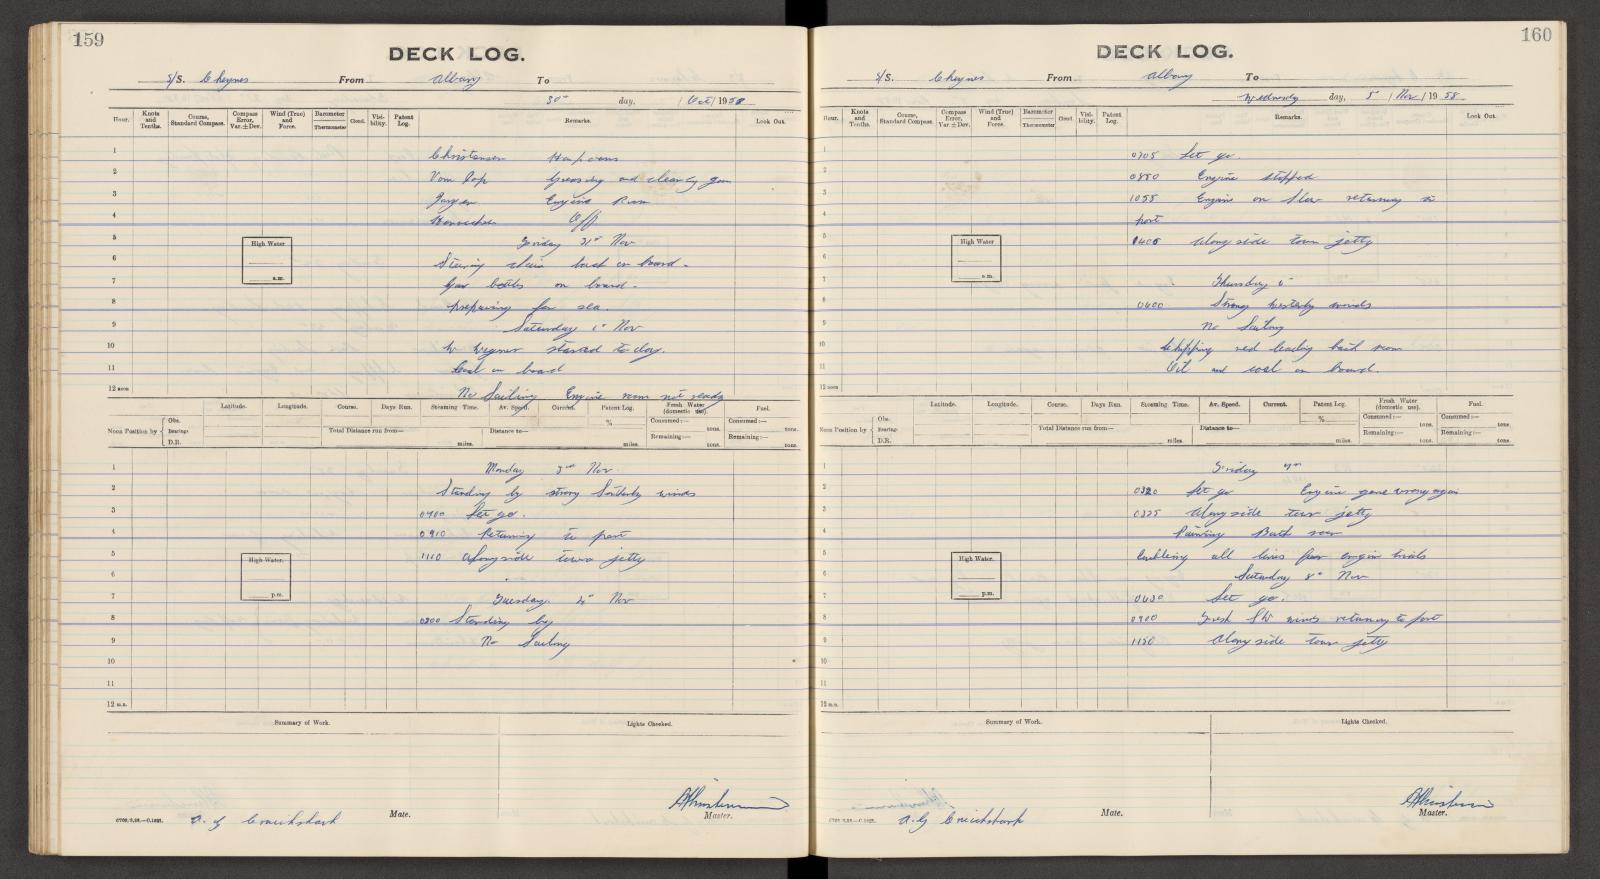 159
DECK LOG.
S/S. Cheynes From Albany To
30th day, / Oct / 1958
Hour. Knots and Tenths. Course, Standard Compass. Compass Error, Var. ± Dev. Wind (True) and Force. Barometer Thermometer Cond. Visibility. Patent Log. Remarks. Look Out.
1 Christensen
2 Greasing and cleaning gun
3 Engine Room
4 Off
5 Friday 31st Nov
High Water
6 chain back on board.
a.m.
7 Gas bottles on board.
8 preparing for sea.
9 Saturday 1st Nov
10 W Wegner started to day.
11 on board
12 noon No Sailing Engine room not ready
Latitude. Longitude. Course. Days Run. Steaming Time. Av. Speed. Current. Patent Log. Fresh Water (domestic use). Fuel.
Noon Position by Obs. Bearings D.R. Total Distance run from— miles. Distance to— miles. % Consumed:— tons. Remaining:— tons. Consumed:— tons. Remaining:— tons.
1 Monday 3rd Nov.
2 Standing by strong Southerly winds
3 0700 Let go.
4 0910 Returning to port
5 1110 Alongside town jetty
High Water.
6
p.m.
7 Tuesday 4th Nov
8 0300 Standing by
9 No Sailing
10
11
12 m.n.
Summary of Work. Lights Checked.
A. G Cruickshank Mate. Master.
160
DECK LOG.
S/S. Cheynes From Albany To
Wednesday day, 5 / Nov / 1958
Hour. Knots and Tenths. Course, Standard Compass. Compass Error, Var. ± Dev. Wind (True) and Force. Barometer Thermometer Cond. Visibility. Patent Log. Remarks. Look Out.
1 0705 Let go.
2 Engine stopped
3 1055 Engine on Slow returning to
4 port
5 1405 Along side town jetty
High Water
6
a.m.
7 Thursday 6th
8 0400 Strong Westerly winds
9 No Sailing
10 Chipping red leading bath room
11 Oil and coal on board.
12 noon
Latitude. Longitude. Course. Days Run. Steaming Time. Av. Speed. Current. Patent Log. Fresh Water (domestic use). Fuel.
Noon Position by Obs. Bearings D.R. Total Distance run from— miles. Distance to— miles. % Consumed:— tons. Remaining:— tons. Consumed:— tons. Remaining:— tons.
1 Friday 7th
2 0320 Let go Engine gone wrong again
3 0325 Along side town jetty
4 Painting Bath room
5 all lines for engin trials
High Water.
6 Saturday 8th Nov
p.m.
7 0430 Let go.
8 0900 Fresh SW winds returning to port
9 1150 Along side town jetty
10
11
12 m.n.
Summary of Work. Lights Checked.
A. G Cruickshank Mate. Master.